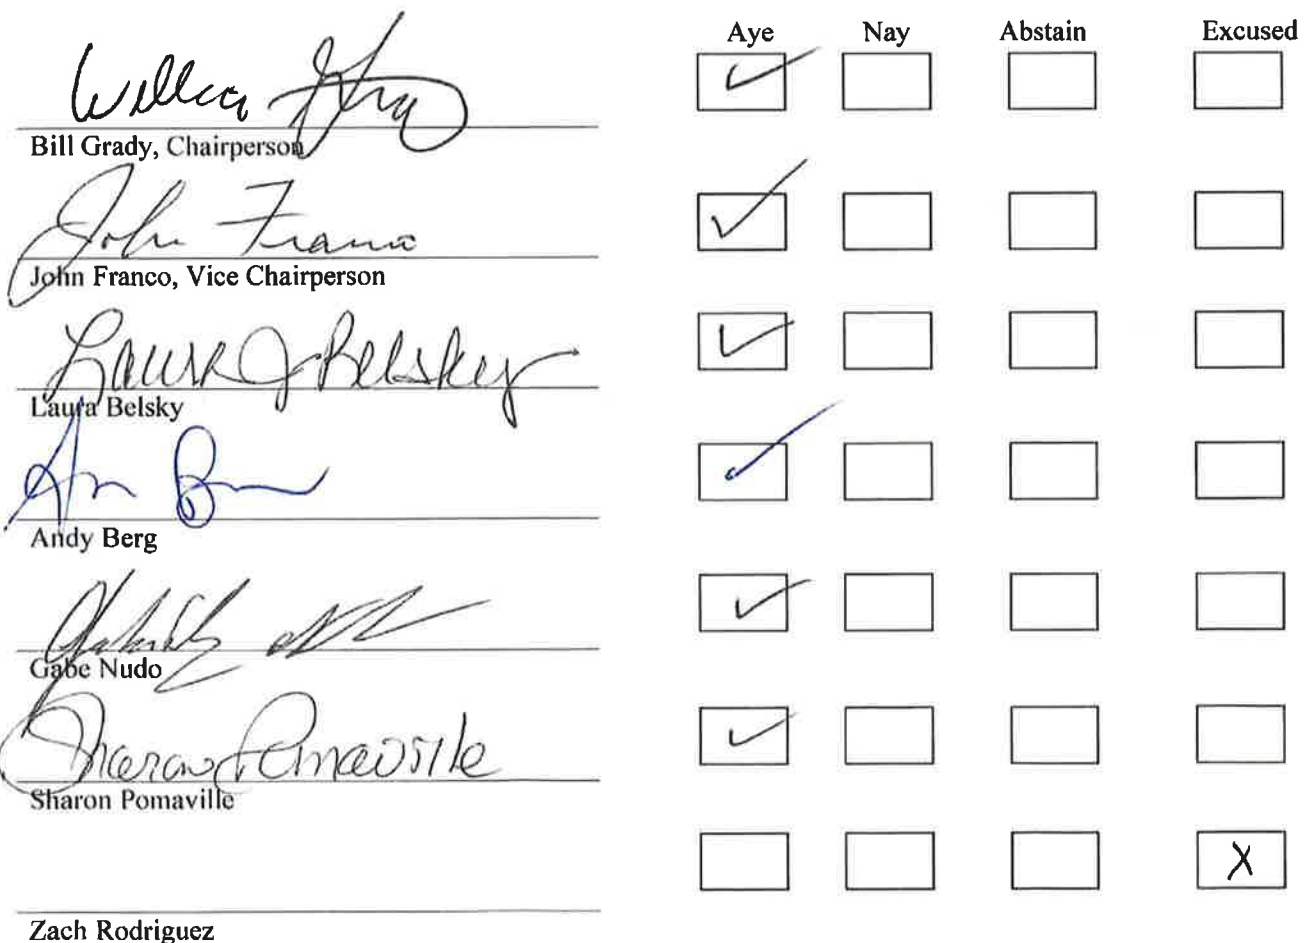 Aye Nay Abstain Excused
Willia Gra
Bill Grady, Chairperson
John Franco
John Franco, Vice Chairperson
Laura J Belsky
Laura Belsky
Andy Berg
Gabe Nudo
Sharon Pomaville
Sharon Pomaville
X
Zach Rodriguez